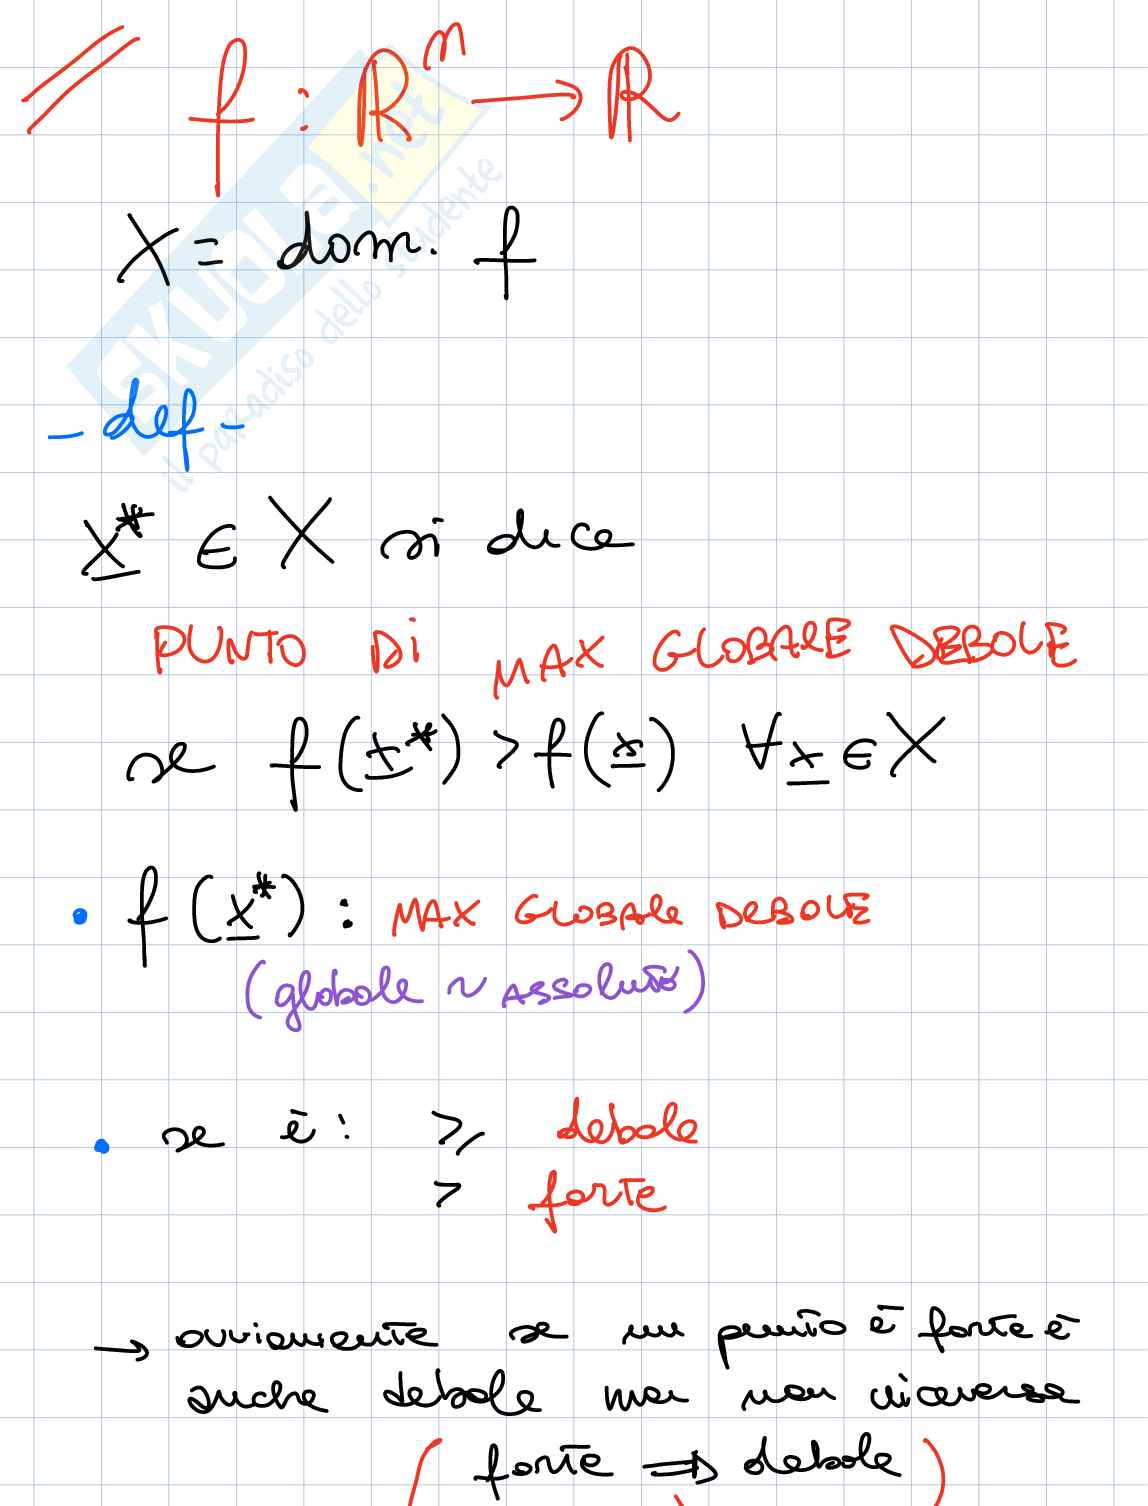 f : ℝⁿ → ℝ
X = dom. f
- def -
x* ∈ X si dice
PUNTO DI MAX GLOBALE DEBOLE
se f(x*) > f(x) ∀x ∈ X
• f(x*) : MAX GLOBALE DEBOLE
(globale ~ ASSOLUTO)
• se è : ≥ debole
> forte
→ ovviamente se un punto è forte è
anche debole ma non viceversa
( forte ⇒ debole )
SKUOLA.net
il paradiso dello studente